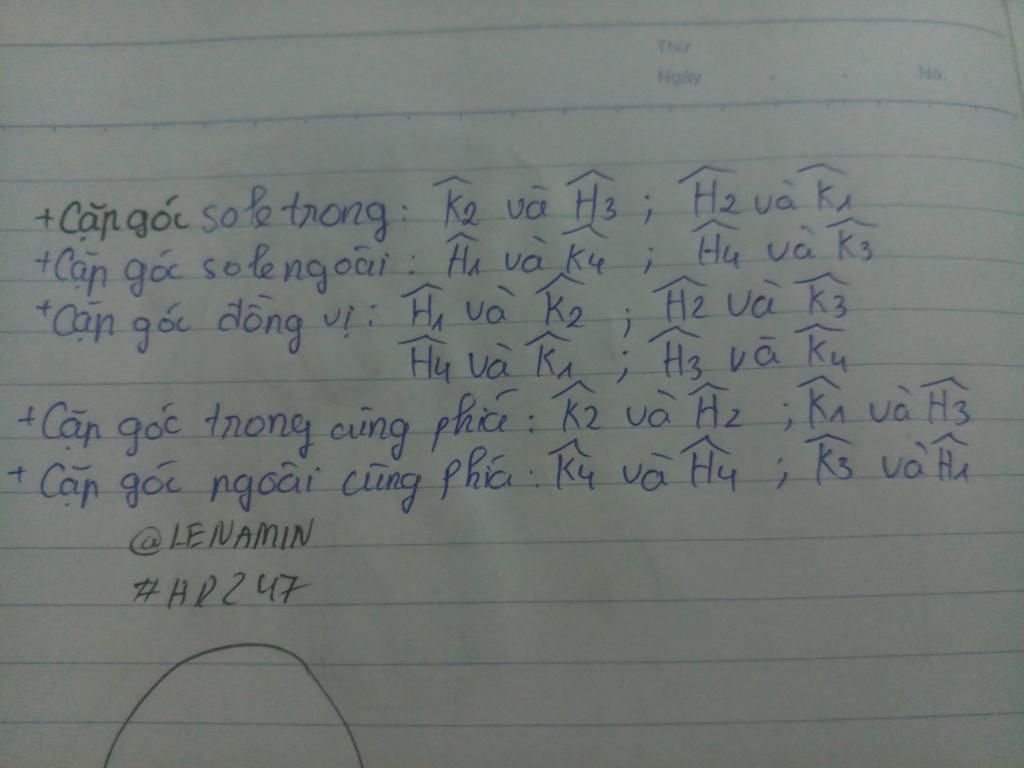 Thứ
Ngày No.
+ Cặp góc so le trong: K̂2 và Ĥ3 ; Ĥ2 và K̂1
+ Cặp góc so le ngoài: Ĥ1 và K̂4 ; Ĥ4 và K̂3
+ Cặp góc đồng vị: Ĥ1 và K̂2 ; Ĥ2 và K̂3
Ĥ4 và K̂1 ; Ĥ3 và K̂4
+ Cặp góc trong cùng phía: K̂2 và Ĥ2 ; K̂1 và Ĥ3
+ Cặp góc ngoài cùng phía: K̂4 và Ĥ4 ; K̂3 và Ĥ1
@LENAMIN